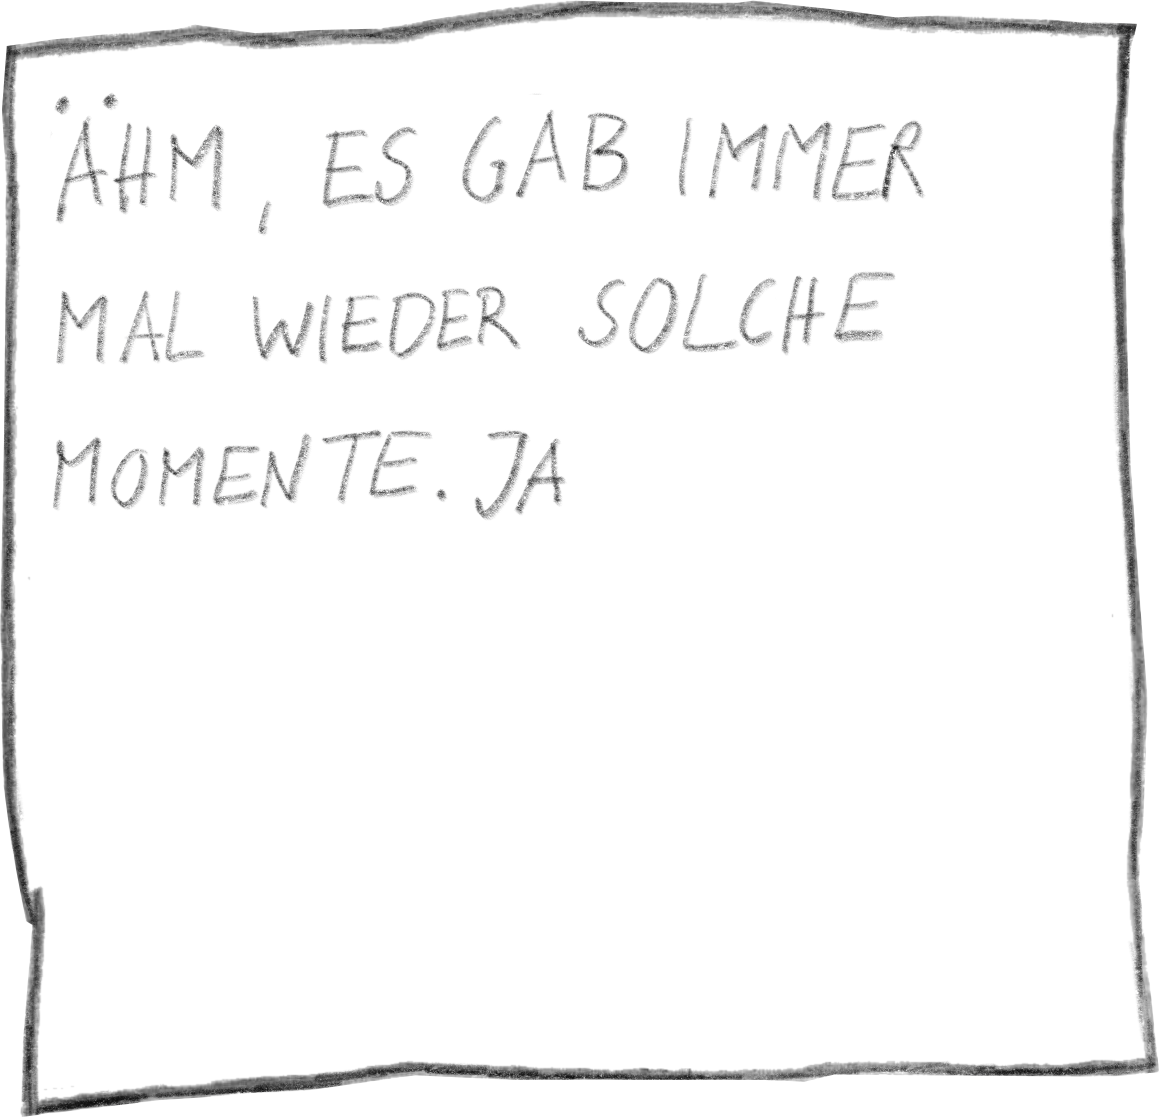 ÄHM, ES GAB IMMER
MAL WIEDER SOLCHE
MOMENTE. JA